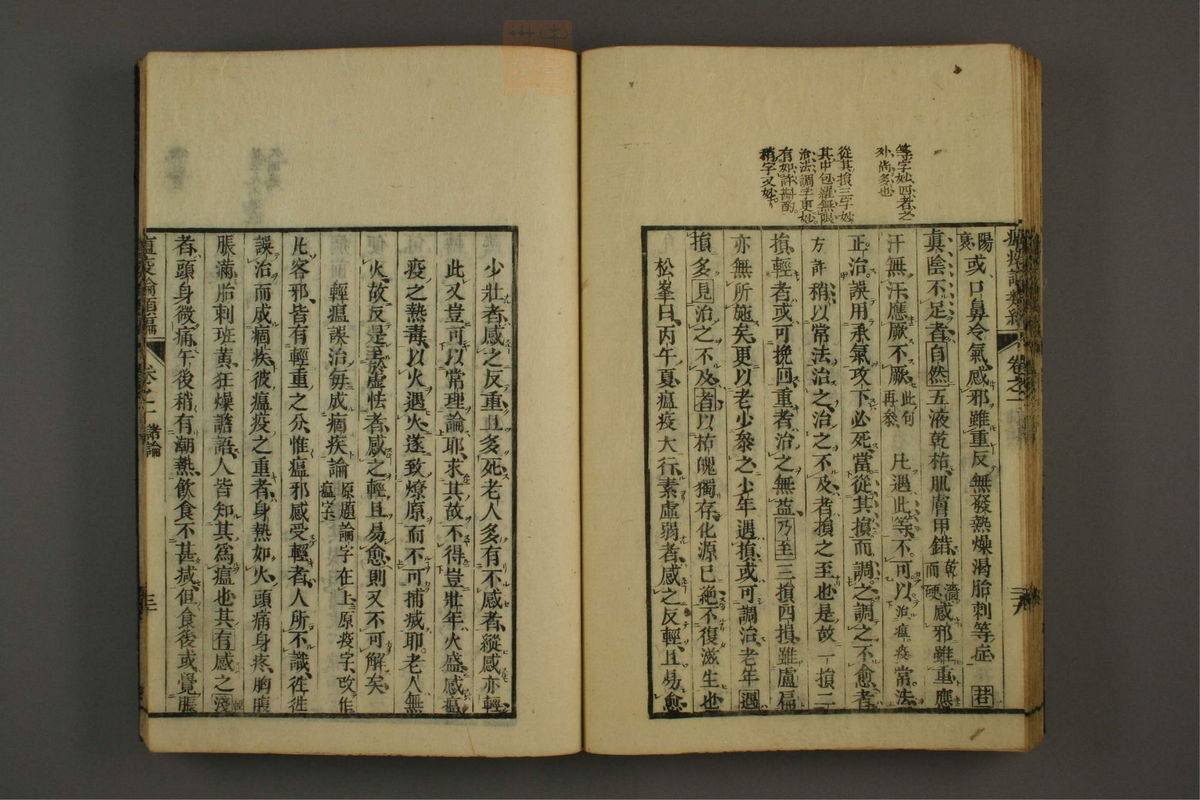 等字妙四者之
外尚多也
從其損三字妙
其中包羅無限
治法調字更妙
有如許斟酌
稍字又妙
瘟疫論類編 卷之二
陽衰或口鼻冷氣感邪雖重反無發熱燥渴胎刺等症若
真陰不足者自然五液乾枯肌膚甲錯乾濇而硬感邪雖重應
汗無汗應厥不厥此句再叅凡遇此等不可以治瘟疫常法
正治誤用承氣攻下必死當從其損而調之調之不愈者
方許稍以常法治之治之不及者損之至也是故一損二
損輕者或可挽回重者治之無益乃至三損四損雖盧扁
亦無所施矣更以老少叅之少年遇損或可調治老年遇
損多見治之不及者以枯魄獨存化源已絶不復滋生也
松峯曰丙午夏瘟疫大行素虛弱者感之反輕且易愈
少壯者感之反重且多死老人多有不感者縱感亦輕
此又豈可以常理論耶求其故不得豈壯年火盛感瘟
疫之熱毒以火遇火遂致燎原而不可撲滅耶老人無
火故反是至於虛怯者感之輕且易愈則又不可解矣
輕瘟誤治毎成痼疾論原題論字在上原疫字改作瘟字
凡客邪皆有輕重之分惟瘟邪感受輕者人所不識徃徃
誤治而成痼疾彼瘟疫之重者身熱如火頭痛身疼胸腹
脹滿胎刺班黄狂燥譫語人皆知其爲瘟也其有感之淺
者頭身微痛午後稍有潮熱飲食不甚减但食後或覺脹
瘟疫論類編 卷之二 諸論